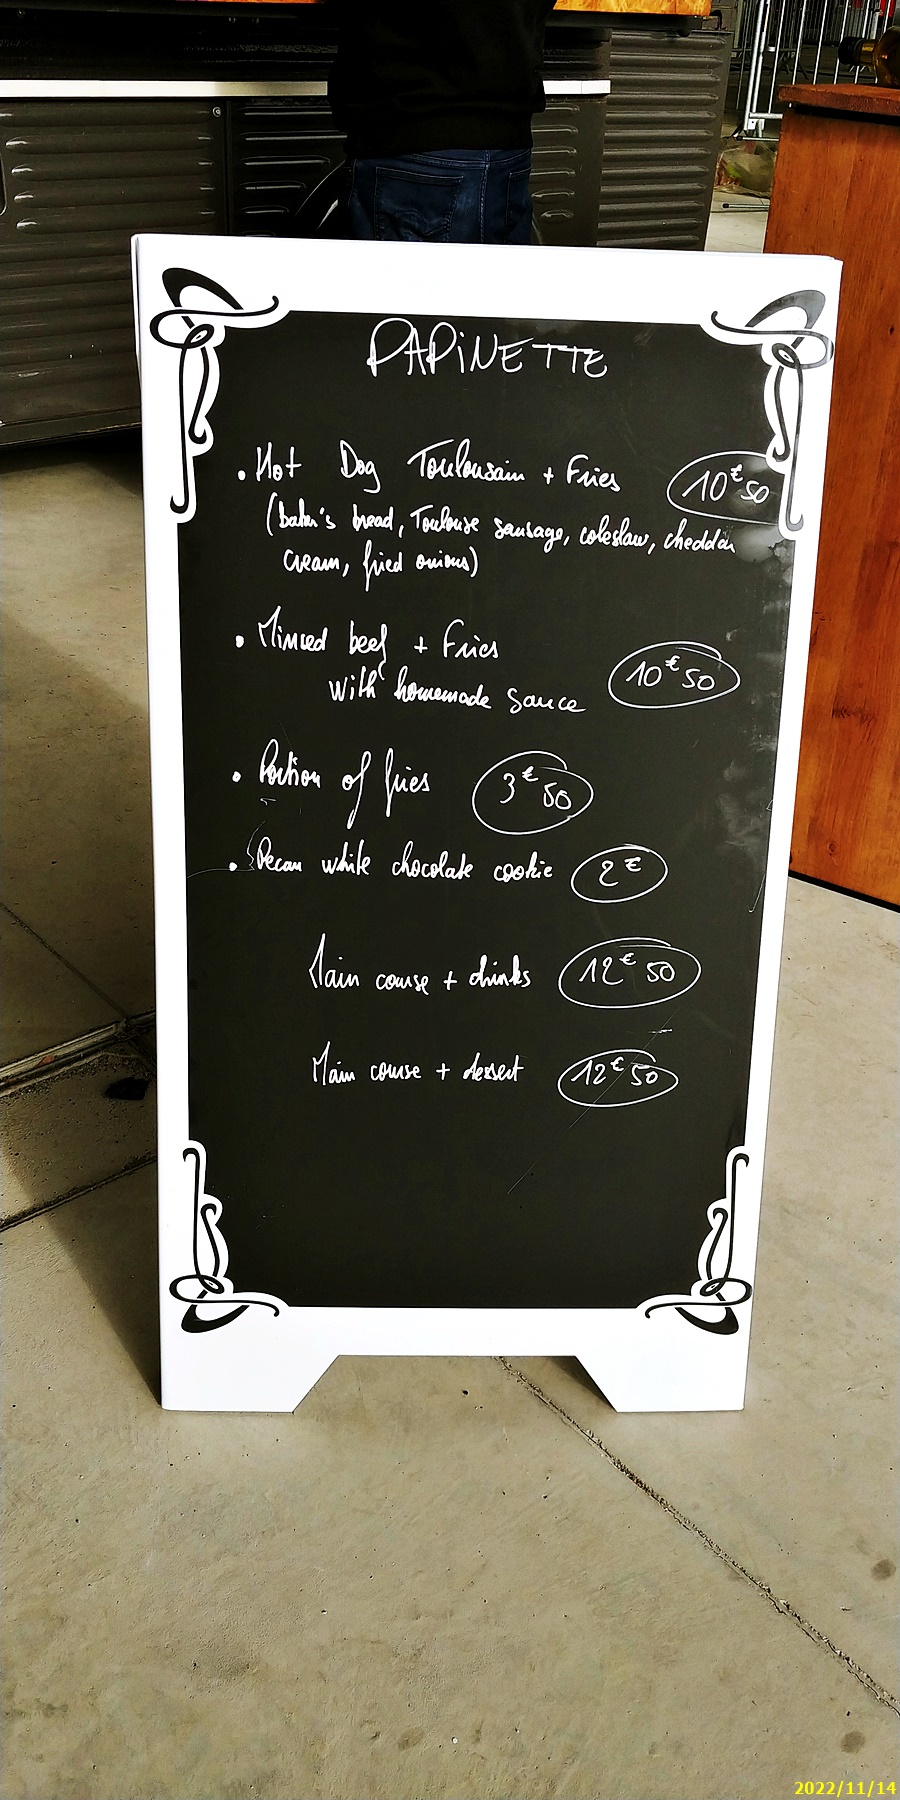 PAPiNETTE
• Hot Dog Toulousain + Fries 10€50
(baker's bread, Toulouse sausage, coleslaw, cheddar
cream, fried onions)
• Minced beef + Fries
with homemade sauce 10€50
• Portion of fries 3€50
• Pecan white chocolate cookie 2€
Main course + drinks 12€50
Main course + dessert 12€50
2022/11/14